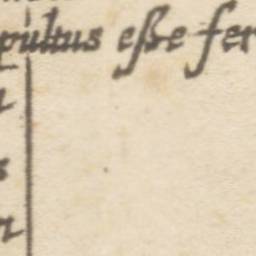 pultus eße fer